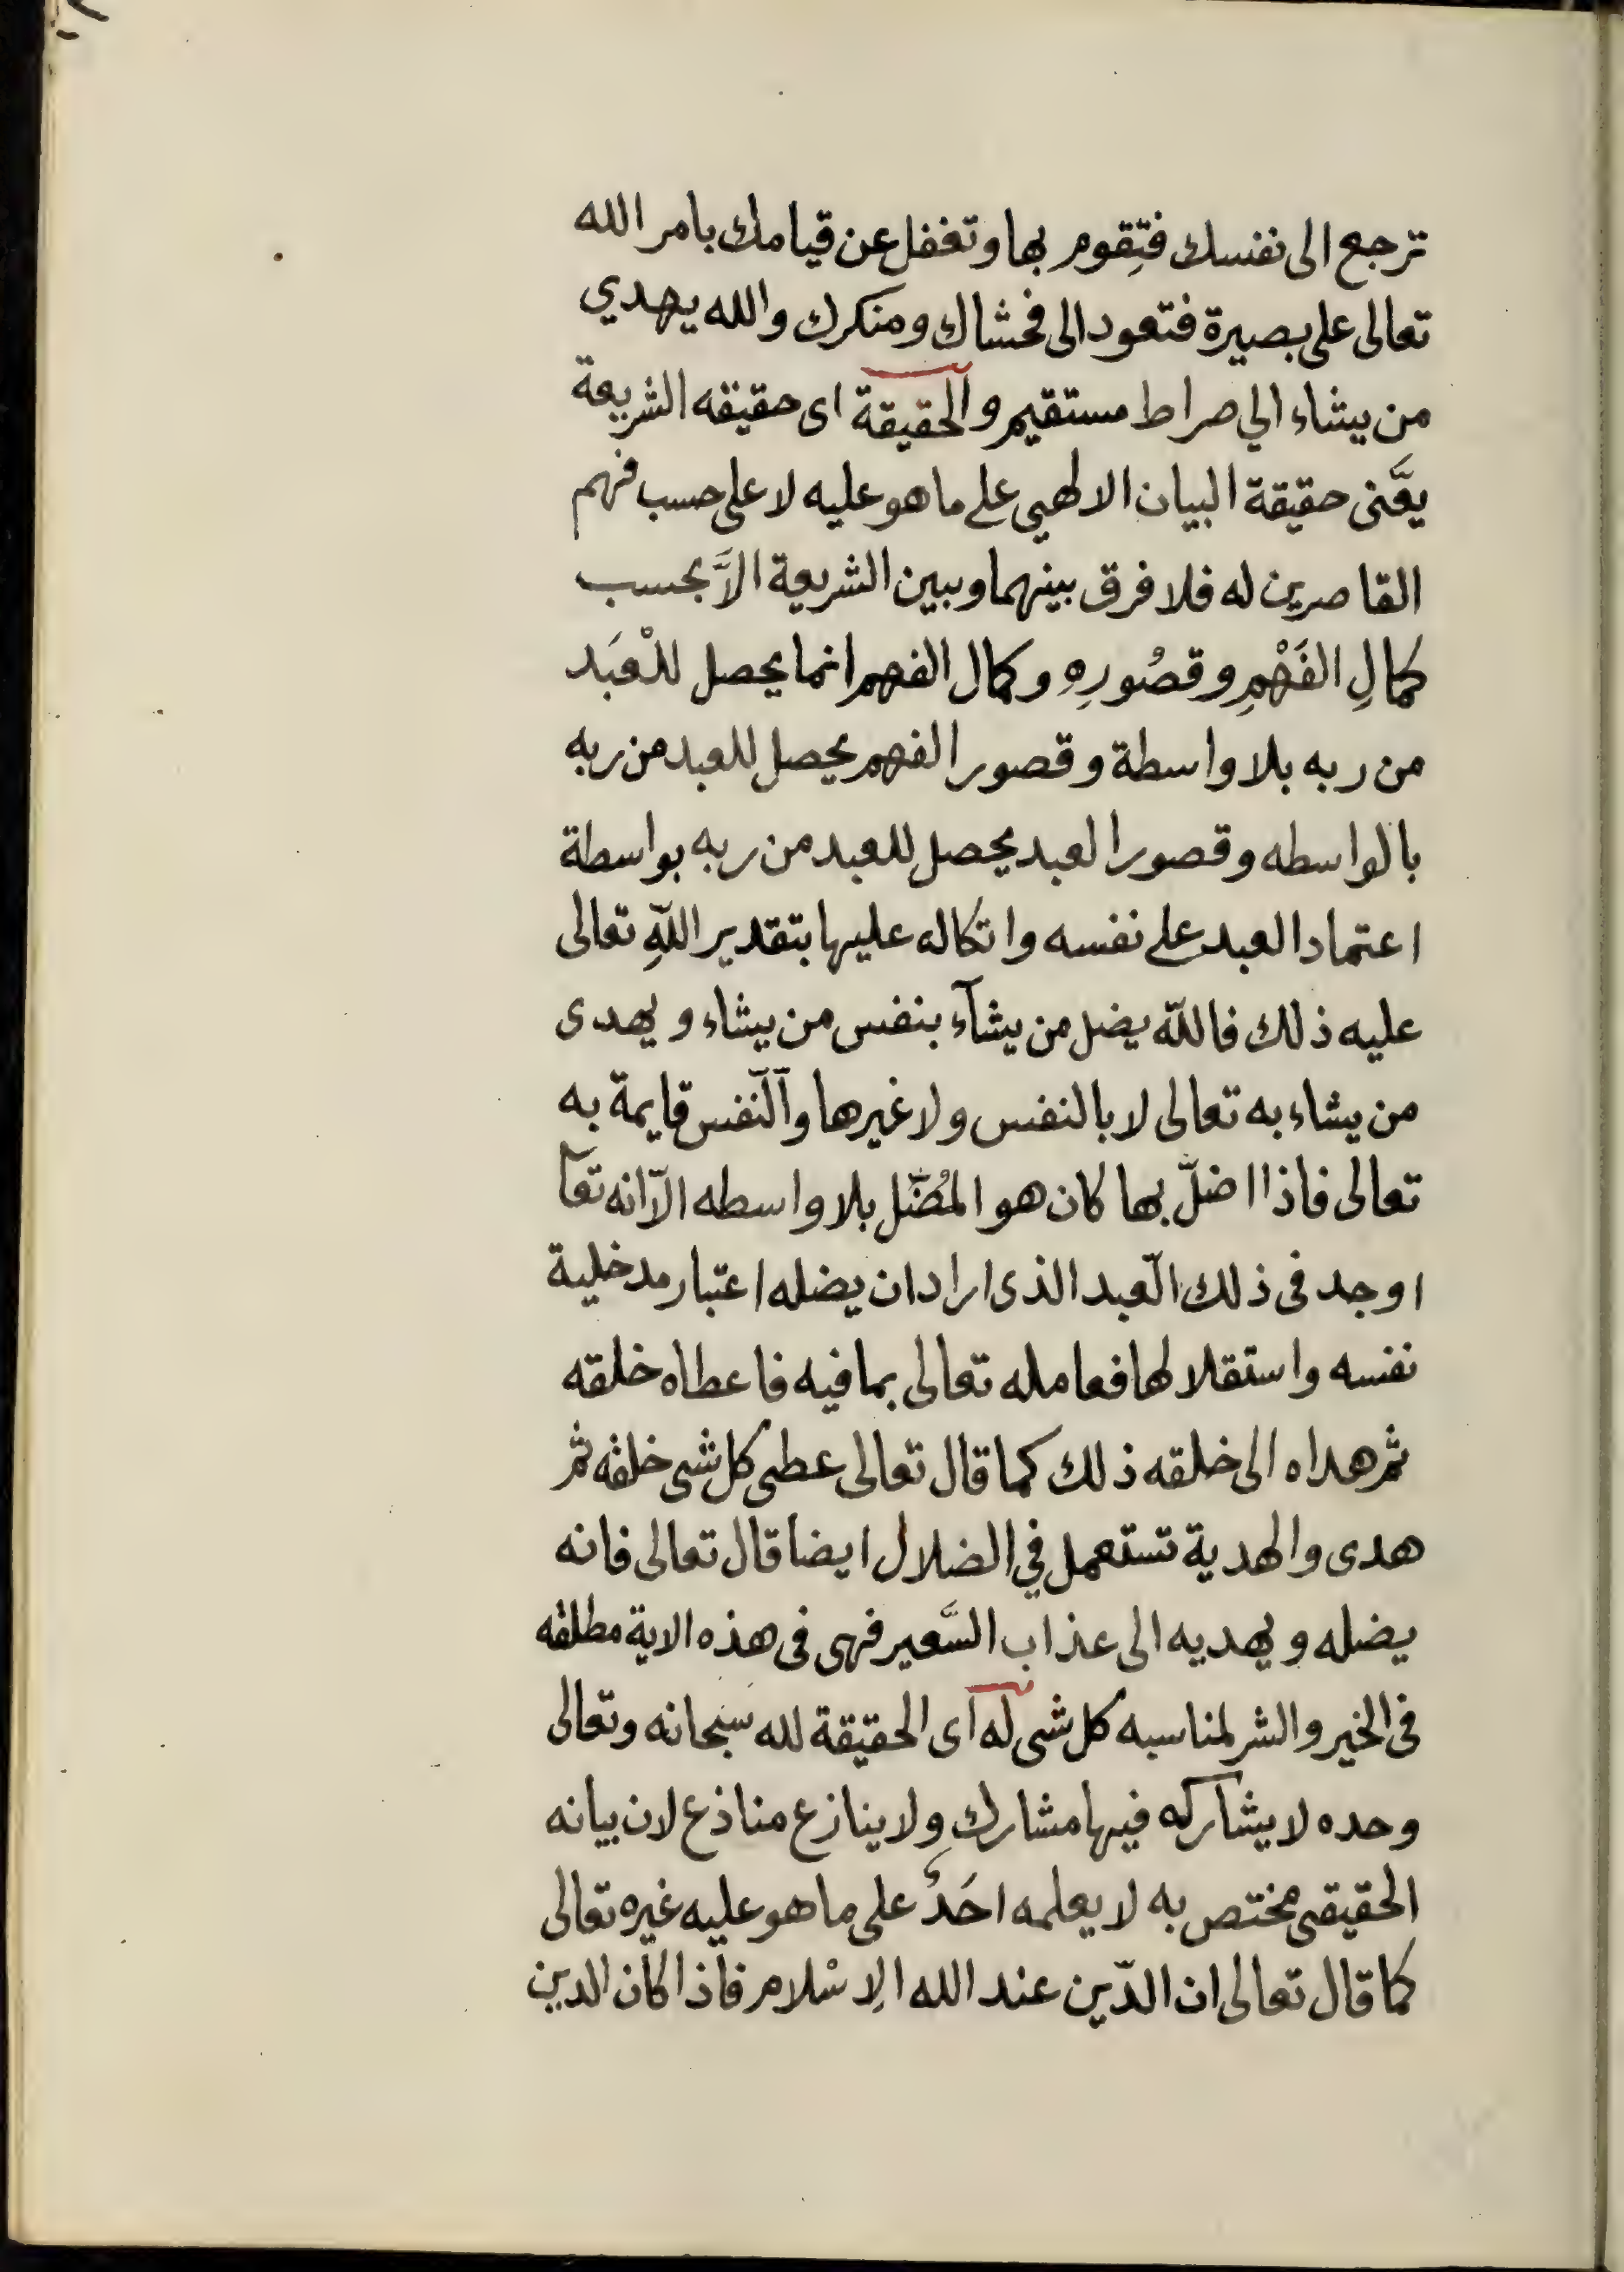 ترجع الى نفسك فتِقوم بها وتغفل عن قيامك بامر الله
تعالى على بصيرة فتعود الى فحشاك ومنكرك والله يهدي
من يشاء الي صراط مستقيم والحقيقة اى حقيقه الشريعة
يعَنى حقيقة البيان الالهي على ما هو عليه لا على حسب فهم
القاصرين له فلا فرق بينهما وبين الشريعة الاَّ بحسب
كمالِ الفَهْمِ وقصُورِهِ وكمال الفهم انما يحصل للْعَبَد
من ربه بلا واسطة وقصور الفهم يحصل للعبد من ربه
بالواسطه وقصور العبد يحصل للعبد من ربه بواسطة
اعتماد العبد على نفسه واتكاله عليها بتقدير اللّهِ تعالى
عليه ذلك فاللّه يضل من يشآء بنفس من يشاء ويهدى
من يشاء به تعالى لا بالنفس ولا غيرها وآلنّفس قايمة به
تعالى فاذا اضلّ بها كان هو المُضّل بلا واسطه الاّ انه تعآ
اوجد فى ذلك الّعبد الذى اراد ان يضله اعتبار مدخلية
نفسه واستقلالها فعامله تعالى بما فيه فاعطاه خلقه
ثم هداه الى خلقه ذلك كما قال تعالى عطى كل شى خلقه ثم
هدى والهدية تستعمل في الضلال ايضا قال تعالى فانه
يضله ويهديه الى عذاب السَّعير فهى فى هذه الاية مطلقه
فى الخير والشر لمناسبه كل شى له اى الحقيقة لله سبحانه وتعالى
وحده لا يشاركه فيها مشارك ولا ينازع مناذع لان بيانه
الحقيقى مختص به لا يعلمه احَدٌ على ما هو عليه غيره تعالى
كما قال تعالى ان الدّين عند الله الاِسْلام فاذا كان الدين